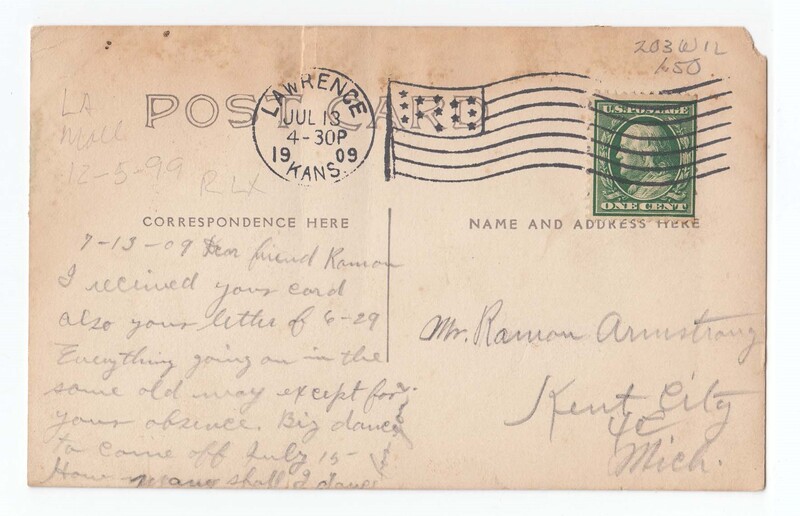 203W12
650
POST CARD
LA
Moll
12-5-99
RLX
LAWRENCE
JUL 13
4-30P
1909
KANS.
U.S. POSTAGE
ONE CENT
CORRESPONDENCE HERE
NAME AND ADDRESS HERE
7-13-09 Dear friend Ramon
I received your card
also your letter of 6-29
Everything going on in the
same old way except for
your absence. Big dance
to come off July 15-
How many shall I dance
for you
Mr. Ramon Armstrong
Kent City
Mich.